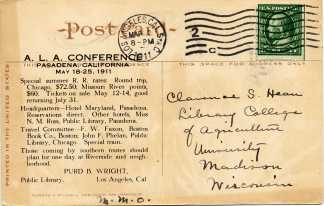 Postcard
LOS ANGELES, CAL.
MAR
8-PM
1911
2
C
A. L. A. CONFERENCE
PASADENA, CALIFORNIA
MAY 18-25, 1911
Special summer R. R. rates: Round trip,
Chicago, $72.50; Missouri River points,
$60. Tickets on sale May 12-14, good
returning July 31.
Headquarters—Hotel Maryland, Pasadena.
Reservations direct. Other hotels, Miss
N. M. Russ, Public Library, Pasadena.
Travel Committee—F. W. Faxon, Boston
Book Co., Boston; John F. Phelan, Public
Library, Chicago. Special train.
Those coming by southern routes should
plan for one day at Riverside and neighborhood.
PURD B. WRIGHT,
Public Library. Los Angeles, Cal
M. M. O.
PRINTED IN THE UNITED STATES
THIS SPACE FOR ADDRESS
Clarence S. Hean
Library College
of Agriculture
University
Madison
Wisconsin